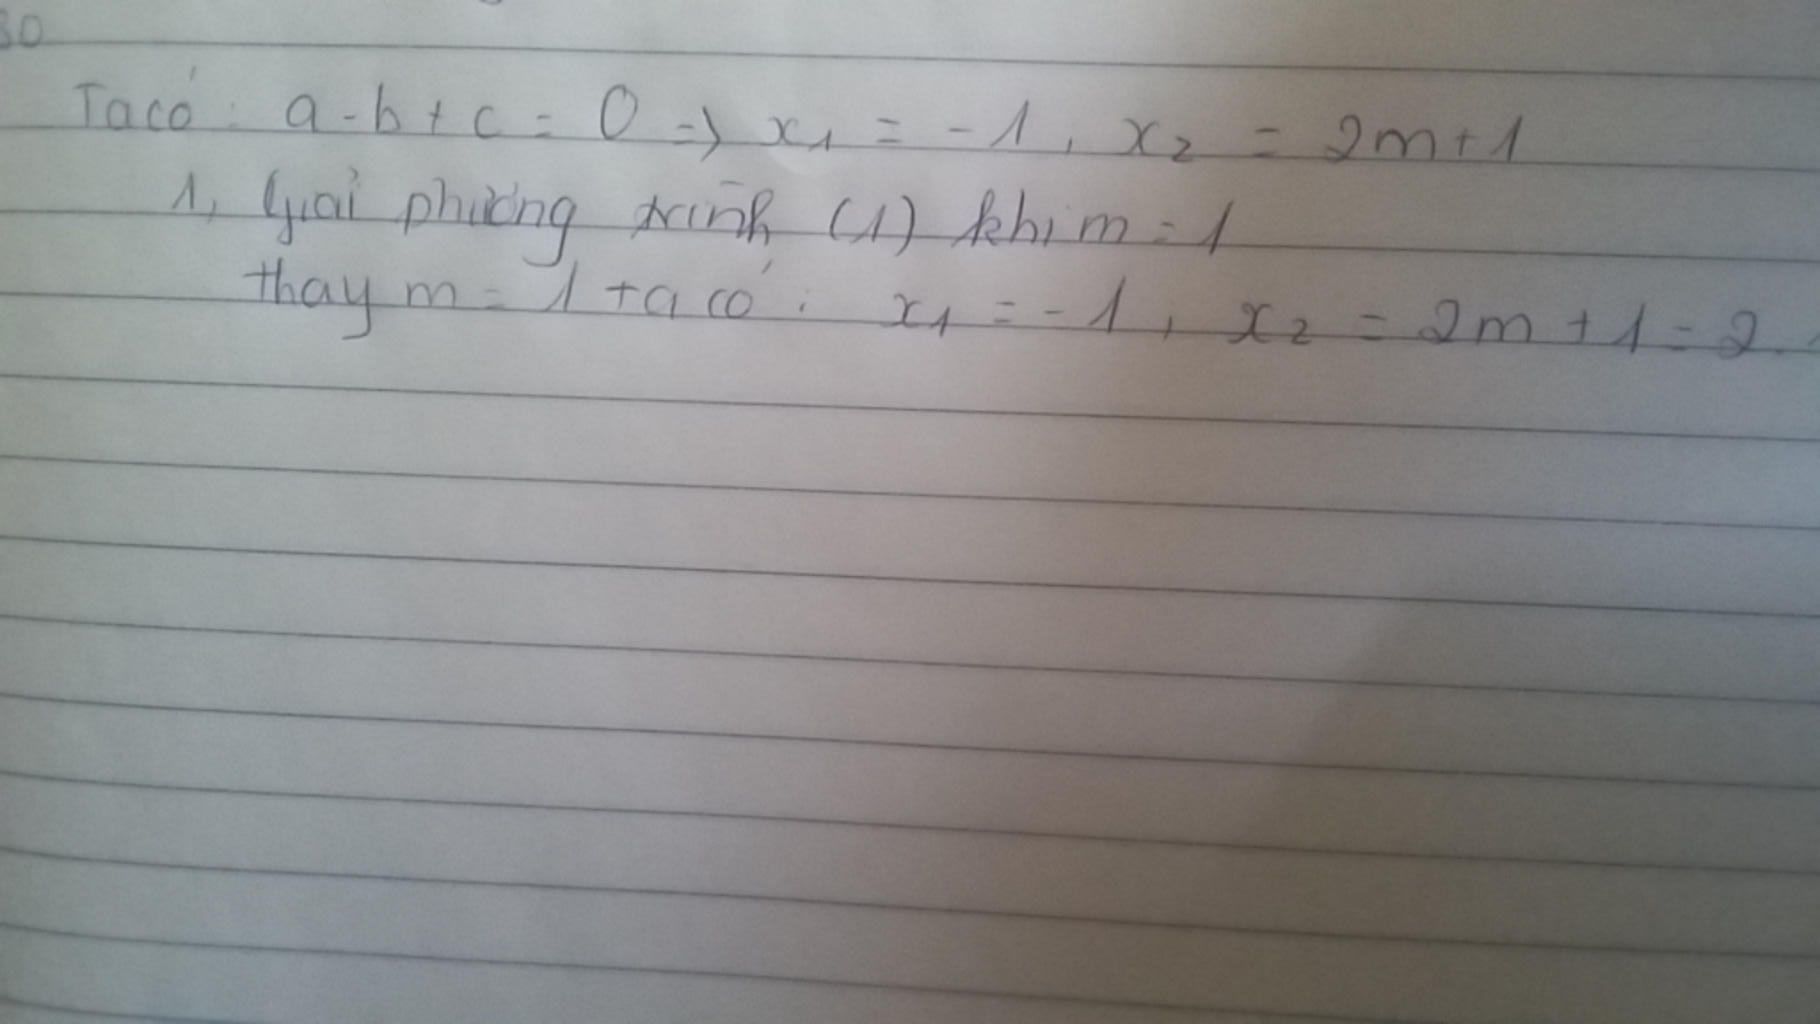 30
Ta có : a - b + c = 0 => x₁ = -1 , x₂ = 2m+1
1, Giải phương trình (1) khi m = 1
thay m = 1 ta có : x₁ = -1 , x₂ = 2m + 1 = 2.